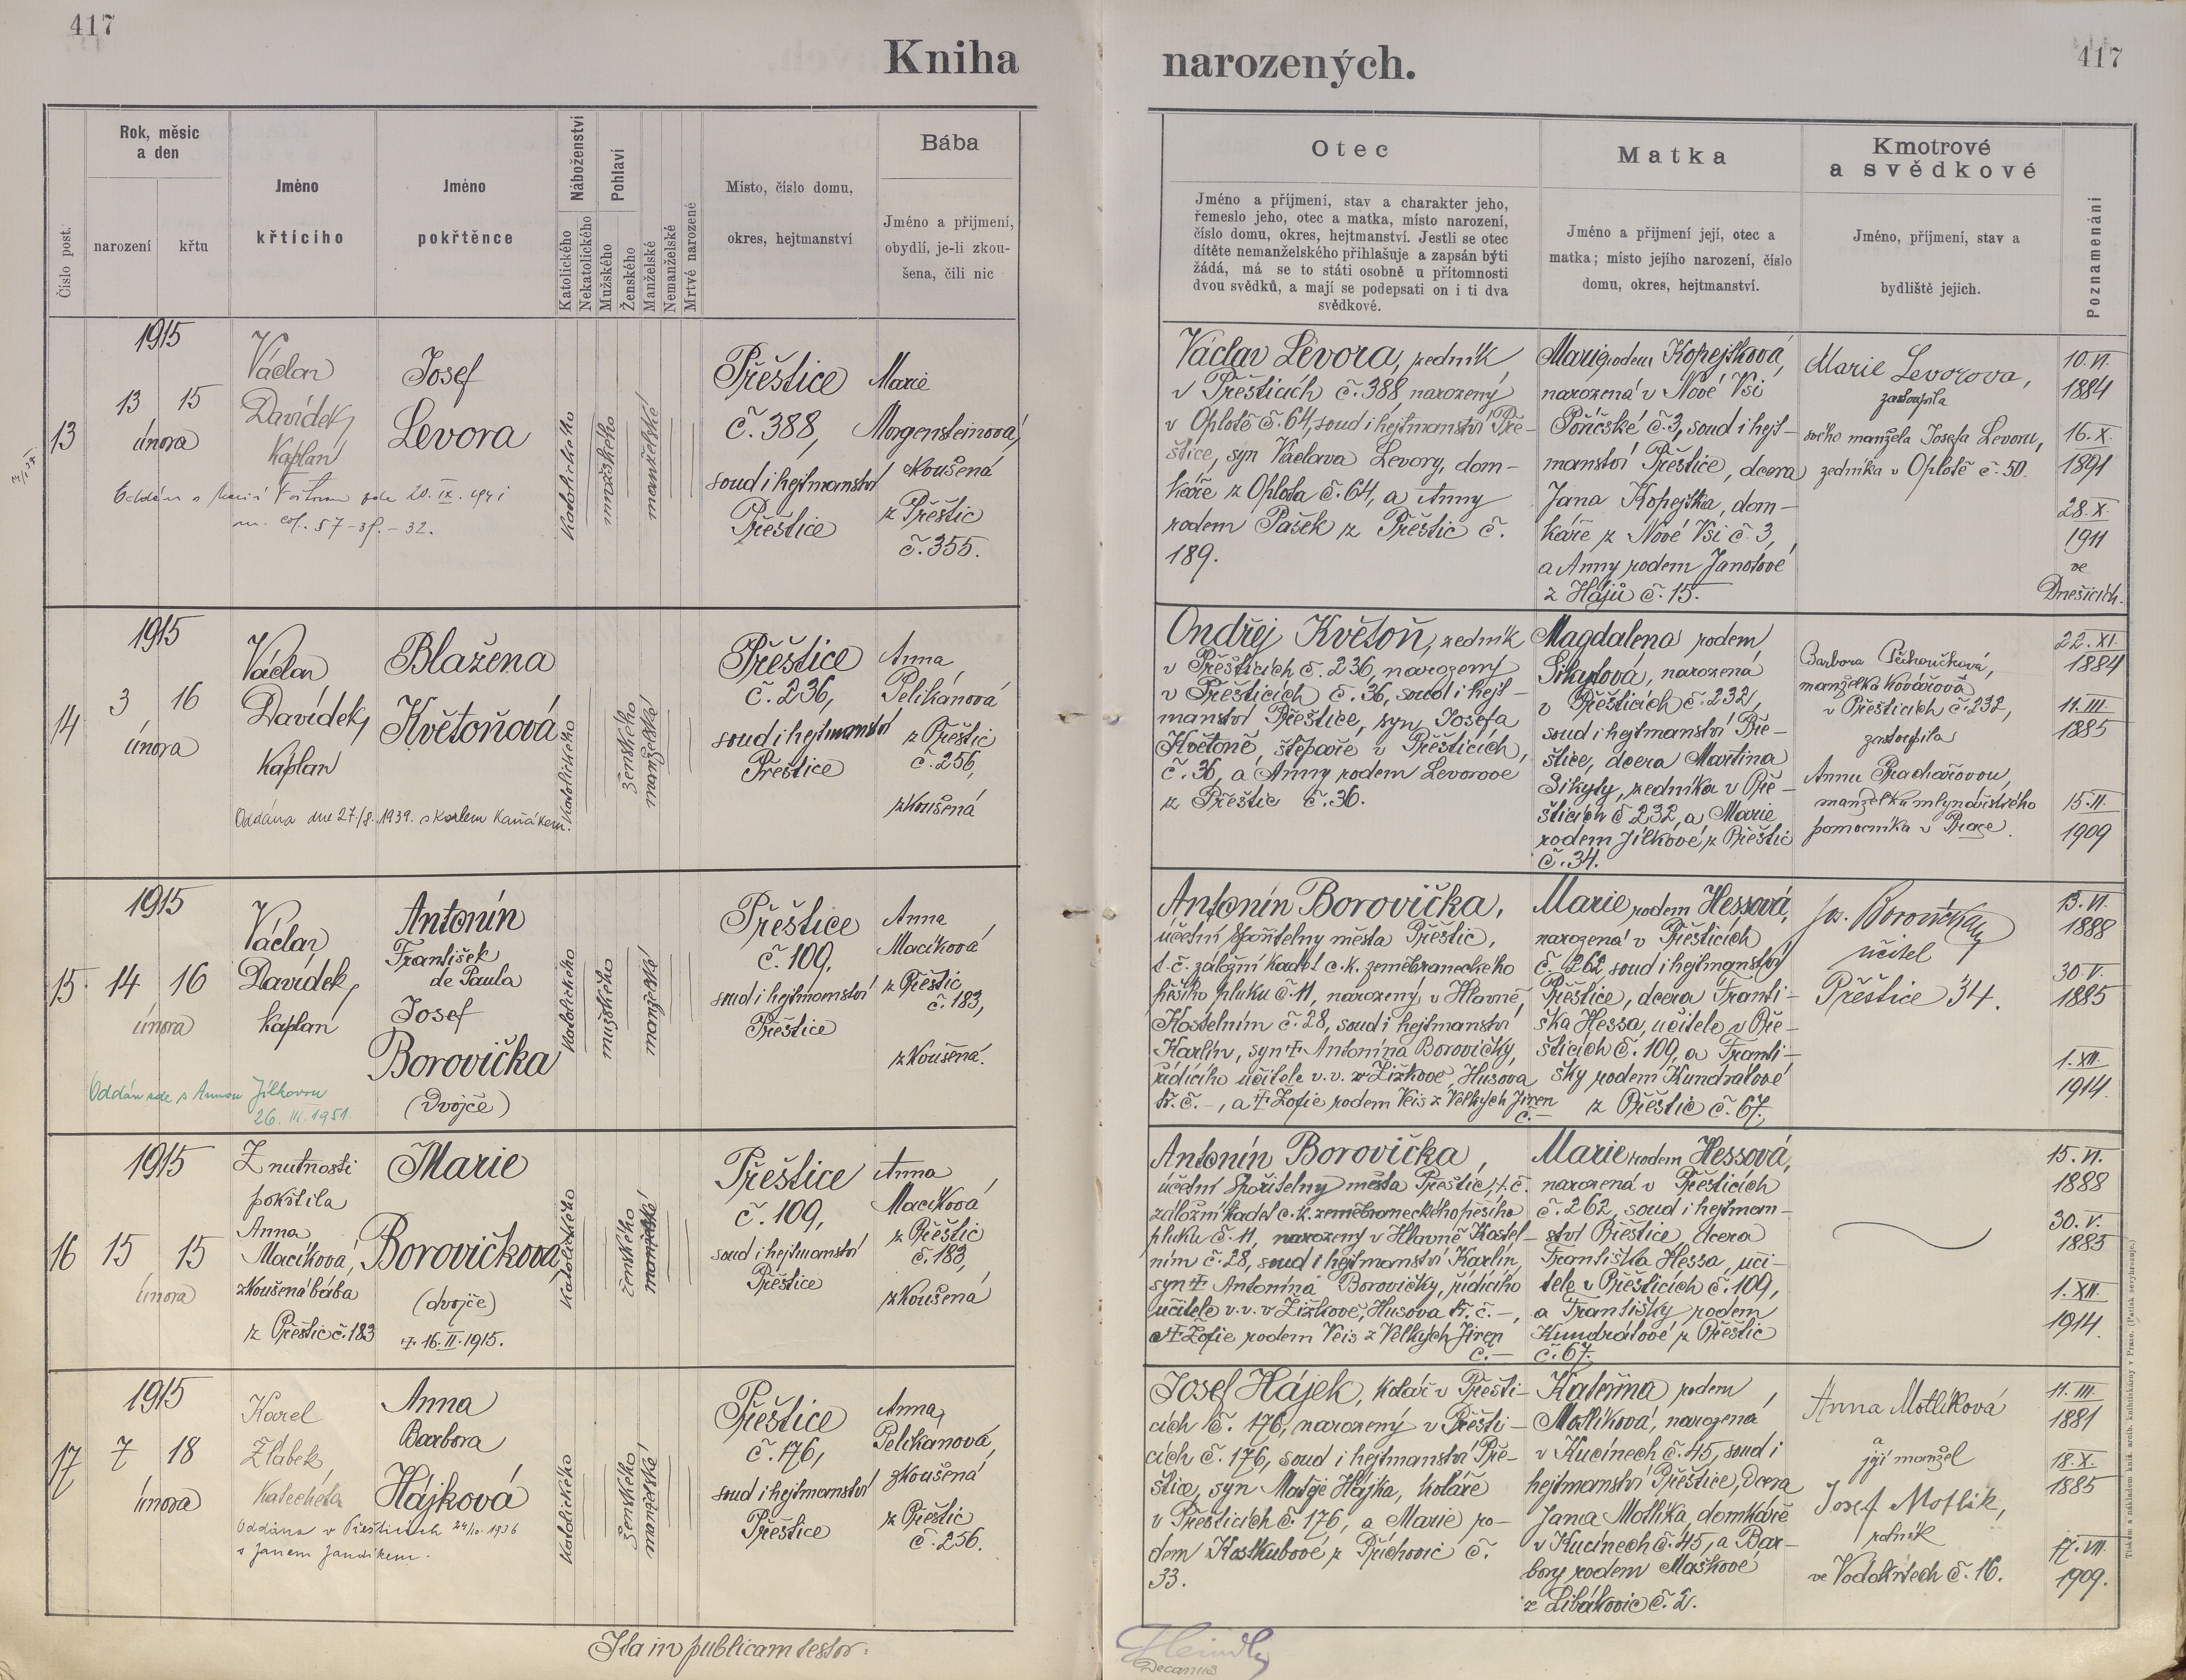 417
Kniha
Rok, měsíc
a den
narození
křtu
Číslo post.
Jméno
křtícího
Jméno
pokřtěnce
Náboženství
Katolického
Nekatolického
Pohlaví
Mužského
Ženského
Manželské
Nemanželské
Mrtvě narozené
Místo, číslo domu,
okres, hejtmanství
Bába
Jméno a příjmení,
obydlí, je-li zkou-
šena, čili nic
13
1915
13 15
února
Václav
Davídek,
kaplan
Josef
Levora
katolického
mužského
manželské
Přeštice
č. 388,
soud i hejtmanství
Přeštice
Marie
Morgensteinová,
zkoušená
z Přeštic
č. 355.
14
1915
3 16
února
Václav
Davídek,
kaplan
Blažena
Květoňová
Oddána dne 27./8. 1939. s Karlem Kaňákem.
katolického
ženského
manželské
Přeštice
č. 236,
soud i hejtmanství
Přeštice
Anna
Pelikánová
z Přeštic
č. 256,
zkoušená
15.
1915
14 16
února
Václav
Davídek,
kaplan
Antonín
František
de Paula
Josef
Borovička
(Dvojče)
Oddán zde s Annou Jílkovou
26. III. 1951
katolického
mužského
manželské
Přeštice
č. 109,
soud i hejtmanství
Přeštice
Anna
Macíková
z Přeštic
č. 183,
zkoušená.
16
1915
15 15
února
Z nutnosti
pokřtila
Anna
Macíková,
zkoušená bába
z Přeštic č. 183
Marie
Borovičková
(dvojče)
†. 16. II. 1915.
katolického
ženského
manželské
Přeštice
č. 109,
soud i hejtmanství
Přeštice
Anna
Macíková
z Přeštic
č. 183,
zkoušená
17
1915
7 18
února
Karel
Žlábek
katecheta
Anna
Barbora
Hájková
Oddána v Přešticích 24/10. 1936
s Janem Jandíkem.
katolického
ženského
manželské
Přeštice
č. 176,
soud i hejtmanství
Přeštice
Anna
Pelikanová,
zkoušená
z Přeštic
č. 256.
Ita in publicam testor:
417
narozených.
Otec
Jméno a příjmení, stav a charakter jeho,
řemeslo jeho, otec a matka, místo narození,
číslo domu, okres, hejtmanství. Jestli se otec
dítěte nemanželského přihlašuje a zapsán býti
žádá, má se to státi osobně u přítomnosti
dvou svědků, a mají se podepsati on i ti dva
svědkové.
Matka
Jméno a přijmení její, otec a
matka; místo jejího narození, číslo
domu, okres, hejtmanství.
Kmotrové
a svědkové
Jméno, příjmení, stav a
bydliště jejich.
Poznamenání
Václav Levora, zedník
v Přešticích č. 388, narozený
v Oplotě č. 64, soud i hejtmanství Pře-
štice, syn Václava Levory, dom-
káře z Oplota č. 64, a Anny
rodem Pašek z Přeštic č.
189.
Marie rodem Kopejtková,
narozená v Nové Vsi
Poříčské č. 3, soud i hejt-
manství Přeštice, dcera
Jana Kopejtka, dom-
káře z Nové Vsi č. 3,
a Anny rodem Janotové
z Hájů č. 15.
Marie Levorova,
zastoupila
svého manžela Josefa Levoru,
zedníka v Oplotě č. 50.
10. VI.
1884
16. X.
1891
28. X.
1911
ve
Dnešicích.
Ondřej Květoň, zedník
v Přešticích č. 236, narozený
v Přešticích č. 36, soud i hejt-
manství Přeštice, syn Josefa
Květoně, štěpaře v Přešticích,
č. 36, a Anny rodem Levorové
z Přeštic č. 36.
Magdalena rodem
Sikytová, narozená
v Přešticích č. 232,
soud i hejtmanství Pře-
štice, dcera Martina
Sikyty, zedníka v Pře-
šticích č. 232, a Marie
rodem Jílkové z Přeštic
č. 34.
Barbora
manželka kovářova
v Přešticích č. 232,
zastoupila
Annu Prachařovou,
manželku mlynářského
pomocníka v Praze.
22. XI.
1884
11. III.
1885
15. II.
1909
Antonín Borovička,
účetní spořitelny města Přeštic,
t. č. záložní kadet c. k. zeměbraneckého
pěšího pluku č. 11, narozený v Hlavně
Kostelním č. 28, soud i hejtmanství
Karlín, syn †. Antonína Borovičky,
řídícího učitele v. v. v Žižkově, Husova
tř. č. –, a †. Žofie rodem Veis z Velkých Jiren
č. –
Marie rodem Hessová,
narozená v Přešticích
č. 262, soud i hejtmanství
Přeštice, dcera Franti-
ška Hessa, učitele v Pře-
šticích č. 109, a Franti-
šky rodem Kundrátové
z Přeštic č. 67.
Jos. Borovička
učitel
Přeštice 34.
13. VI.
1888
30. V.
1885
1. XII.
1914.
Antonín Borovička,
účetní spořitelny města Přeštic, t. č.
záložní kadet c. k. zeměbraneckého pěšího
pluku č. 11, narozený v Hlavně Kostel-
ním č. 28, soud i hejtmanství Karlín,
syn †. Antonína Borovičky, řídícího
učitele v. v. v Žižkově, Husova tř. č. –,
a †. Žofie rodem Veis z Velkých Jiren
č. –
Marie rodem Hessová,
narozená v Přešticích
č. 262, soud i hejtman-
ství Přeštice, dcera
Františka Hessa, uči-
tele v Přešticích č. 109,
a Františky rodem
Kundrátové z Přeštic
č. 67.
15. VI.
1888
30. V.
1885
1. XII.
1914.
Josef Hájek, kolář v Přešti-
cích č. 176, narozený v Přešti-
cích č. 176, soud i hejtmanství Pře-
štice, syn Matěje Hájka, koláře
v Přešticích č. 176, a Marie ro-
dem Koskubové z Příchovic č.
33.
Kateřina rodem
Motlíková, narozená
v Kucínech č. 45, soud i
hejtmanství Přeštice, dcera
Jana Motlíka, domkáře
v Kucínech č. 45, a Bar-
bory rodem Maškové
z Libákovic č. 2.
Anna Motlíková
a
její manžel
Josef Motlík,
rolník
ve Vodokrtech č. 16.
11. III.
1881
18. X.
1885
17. VII.
1909.
Decanus